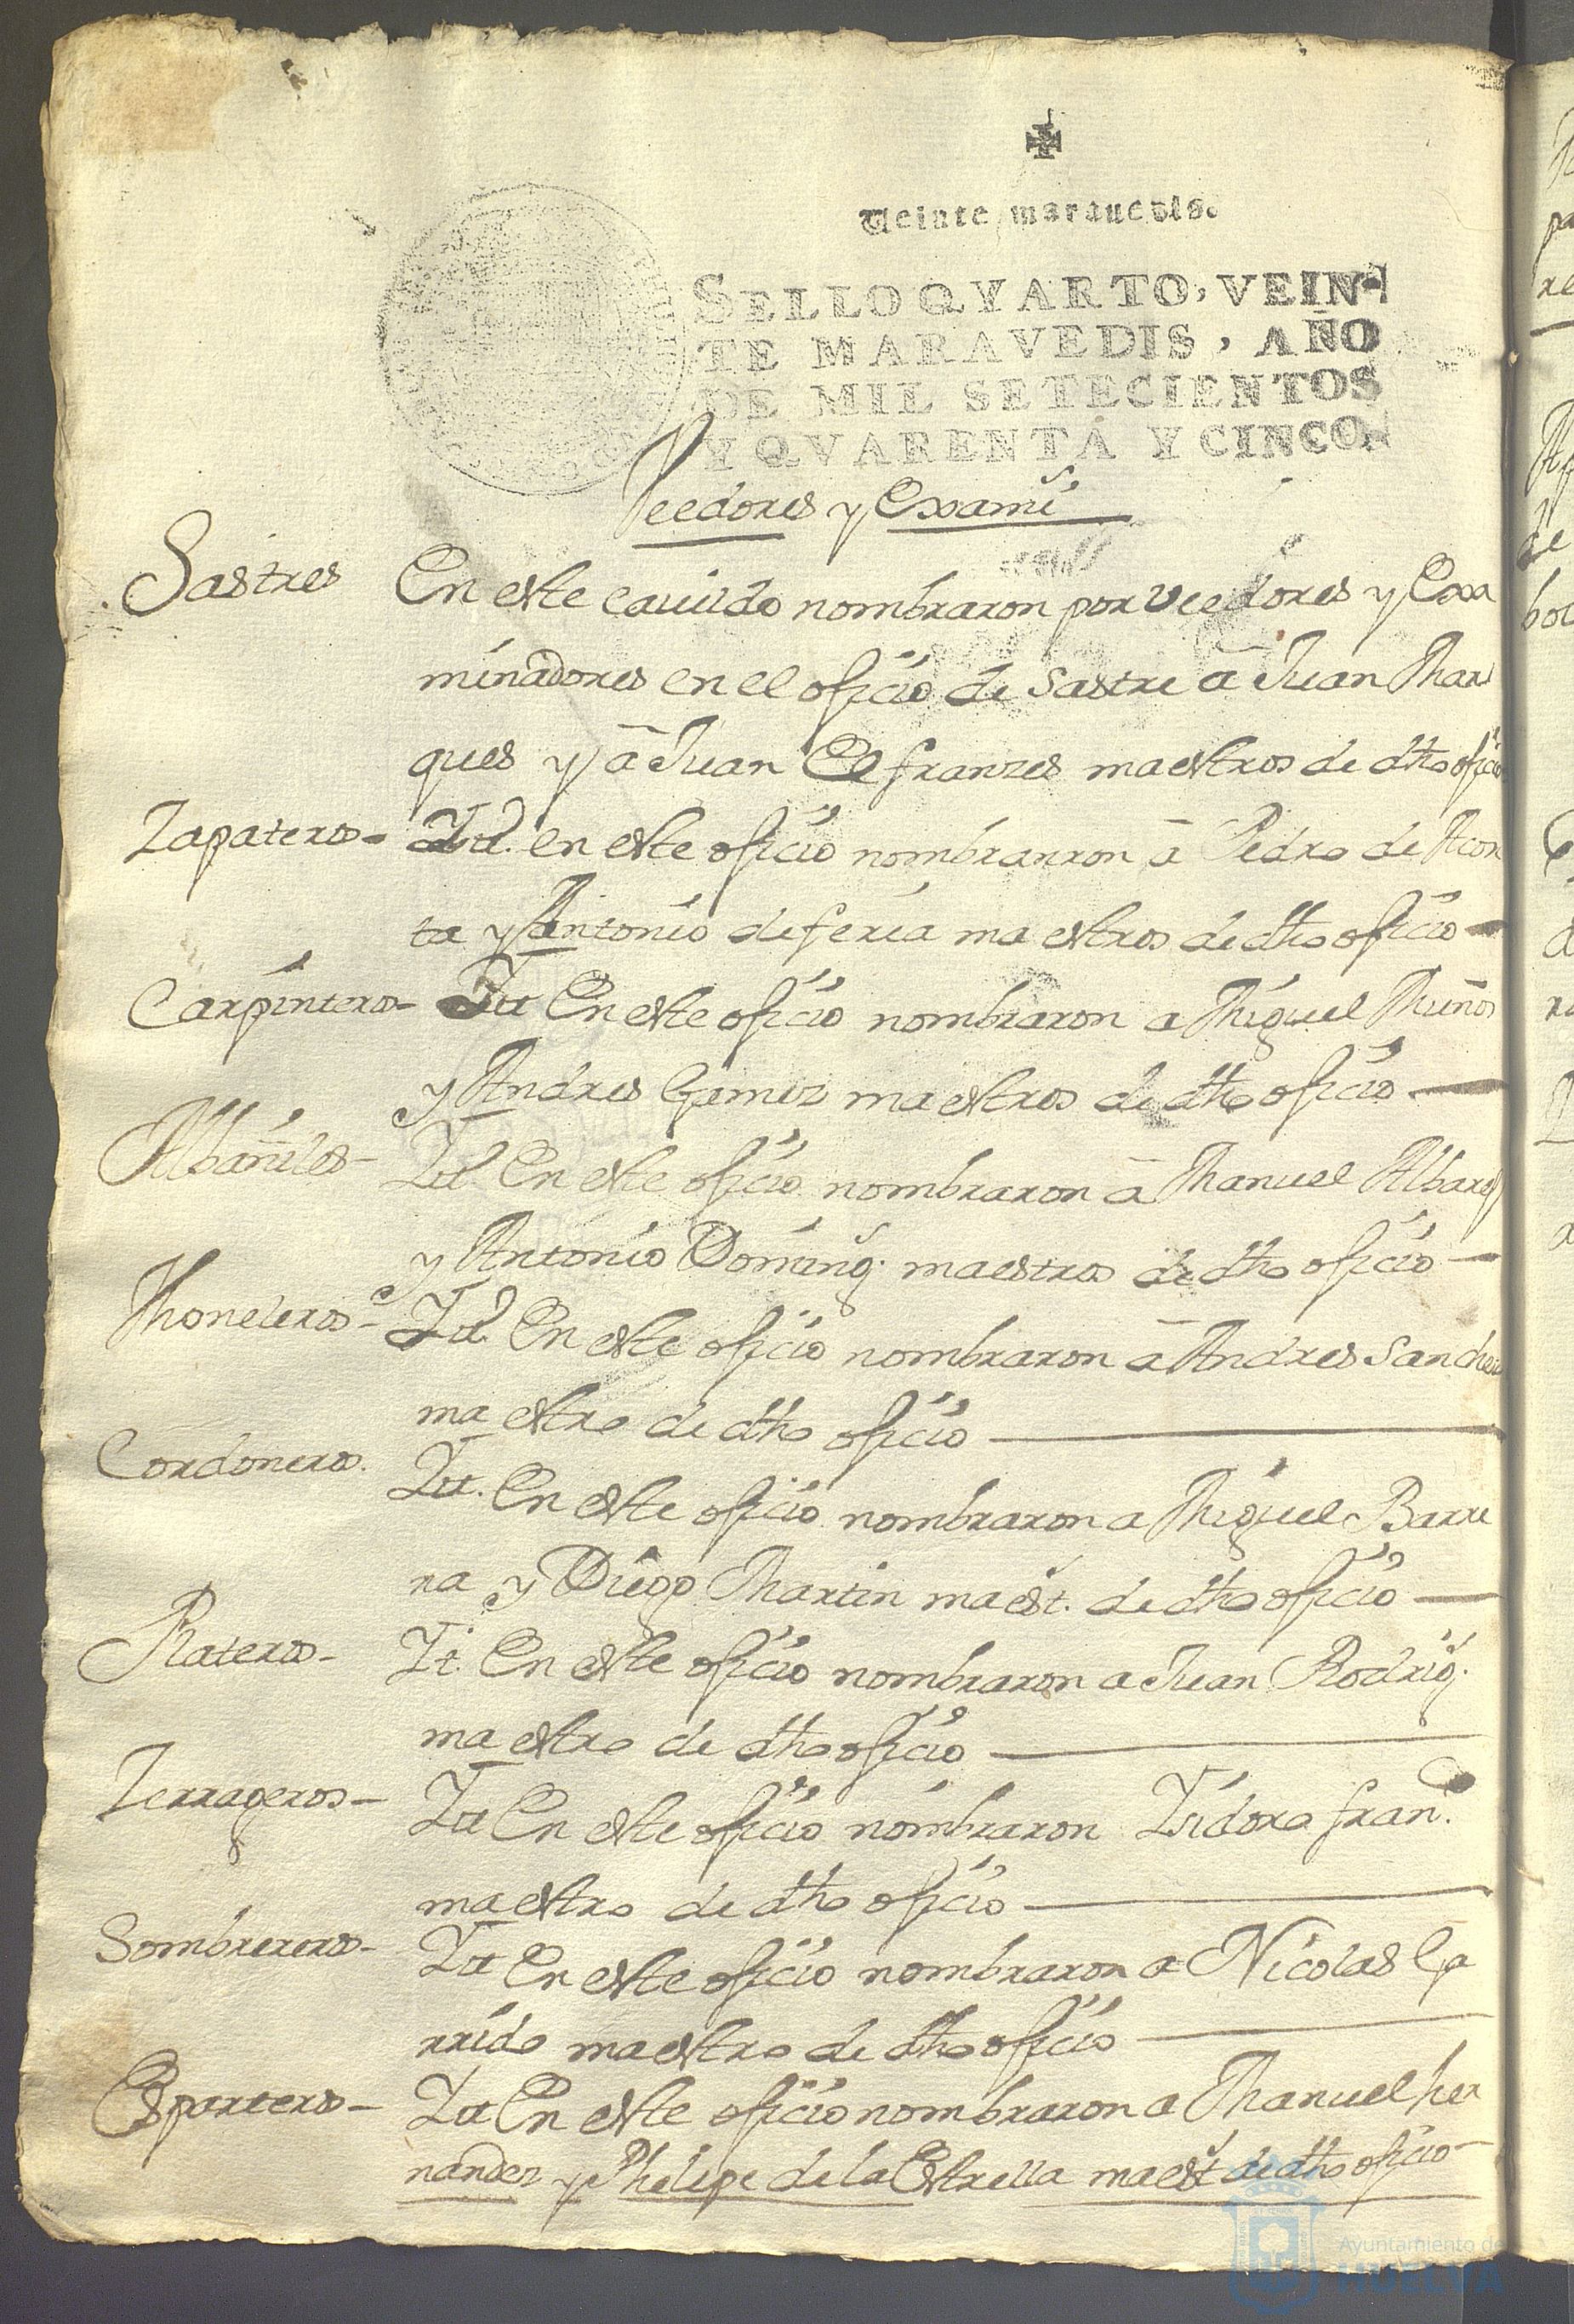 Veinte maravedis.
SELLO QVARTO, VEIN-
TE MARAVEDIS, AÑO
DE MIL SETECIENTOS
Y QVARENTA Y CINCO.
Veedores y Examẽ
Sastres En este cauildo nombraron por veedores y Exa
minadores en el oficio de sastre â Juan Mar
ques y â Juan El franzes maestros de dho oficio
Zapateros- Itt. en este oficio nombranron â Pedro de Acos
ta y Antonio de feria maestros de dho oficio-
Carpinteros- Itt En este oficio nombraron a Miguel Muños
y Andres Gamez maestros de dho oficio
Albañiles- Itt En este oficio nombraron â Manuel Albares
y Antonio Doming. maestros de dho oficio-
Thoneleros- Itt En este oficio nombraron â Andres Sanches
maestro de dho oficio
Cordoneros. Itt. En este oficio nombraron a Miguel Barre
ra y Diego Martin maest. de dho oficio
Plateros- It. En este oficio nombraron a Juan Rodrig.
maestro de dho oficio
Zerrageros- Itt En este oficio nombraron Isidoro fran.
maestro de dho oficio
Sombrereros- Itt En este oficio nombraron a Nicolas Ga
rrido maestro de dho oficio
Esparteros- Itt En este oficio nombraron a Manuel her
nandez y Phelipe de la Estrella maest de dho oficio
Ayuntamiento de
HUELVA